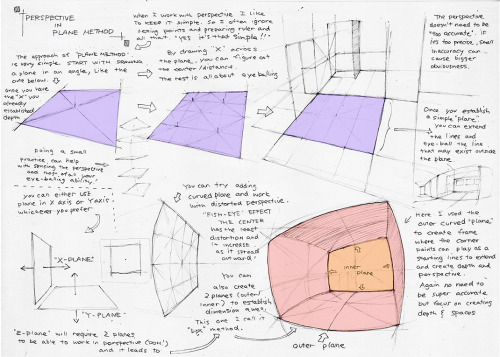 PERSPECTIVE
IN
PLANE METHOD
When I work with perspective I like
TO KEEP IT simple. So I often ignore
setting points and preparing ruler and
all that. Yes it's that simple!!
The perspective
doesn't need to be
"too accurate". if
it's too precise, small
inaccuracy can
cause bigger
obviousness.
The approach of "PLANE METHOD"
is very simple. START WITH DRAWING
a plane in an angle, LIKE the
one below.
once you have
the "X" you
already
established
depth
By drawing "X" across
the plane, you can figure out
the center/distance.
The rest is all about eyeballing
Once you establish
a simple "plane",
you can extend
the lines and
eye-ball the line
that may exist outside
the plane
Doing a small
practice, can help
with sensing the perspective
and your
eye-balling ability!
you can either USE
plane in X axis or Y axis
whichever you prefer
"X-PLANE"
"Y-PLANE"
"Z-plane" will require 2 planes
to be able to work in perspective (DOH!)
and it leads to
You can try adding
curved plane and work
with distorted perspective.
"FISH-EYE" EFFECT
THE CENTER
has the least
distortion and
it increase
as it spread
outward!
You can
also create
2 planes (outer/
inner) to establish
dimension area.
This one I call it
"box" method.
inner
plane
outer plane
Here I used the
outer curved "plane"
to create frame
where the corner
points can play as a
starting lines to extend
and create depth and
perspective.
Again no need to
be super accurate
but focus on creating
depth & spaces